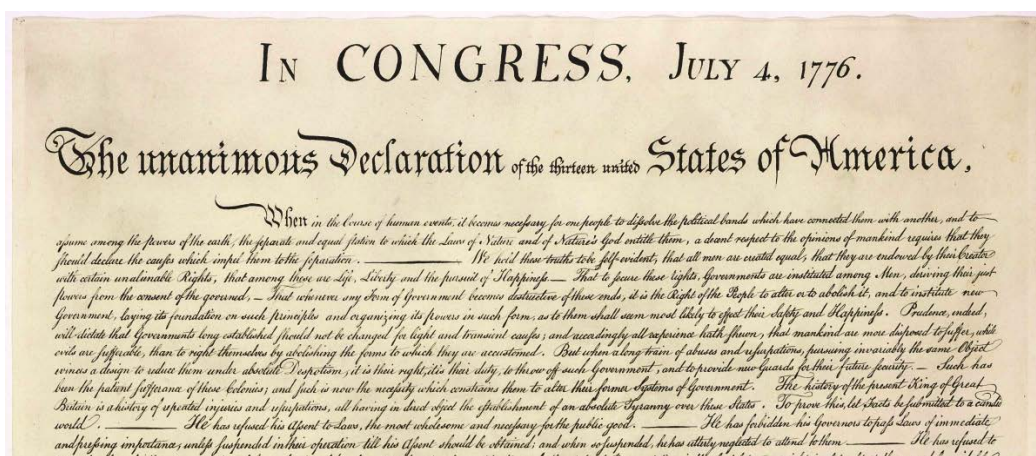 IN CONGRESS, JULY 4, 1776.
The unanimous Declaration of the thirteen united States of America,
When in the Course of human events, it becomes necessary for one people to dissolve the political bands which have connected them with another, and to
assume among the powers of the earth, the separate and equal station to which the Laws of Nature and of Nature's God entitle them, a decent respect to the opinions of mankind requires that they
should declare the causes which impel them to the separation. ——— We hold these truths to be self-evident, that all men are created equal, that they are endowed by their Creator
with certain unalienable Rights, that among these are Life, Liberty and the pursuit of Happiness — That to secure these rights, Governments are instituted among Men, deriving their just
powers from the consent of the governed, — That whenever any Form of Government becomes destructive of these ends, it is the Right of the People to alter or to abolish it, and to institute new
Government, laying its foundation on such principles and organizing its powers in such form, as to them shall seem most likely to effect their Safety and Happiness. Prudence, indeed,
will dictate that Governments long established should not be changed for light and transient causes; and accordingly all experience hath shewn, that mankind are more disposed to suffer, while
evils are sufferable, than to right themselves by abolishing the forms to which they are accustomed. But when a long train of abuses and usurpations, pursuing invariably the same Object
evinces a design to reduce them under absolute Despotism, it is their right, it is their duty, to throw off such Government, and to provide new Guards for their future security. — Such has
been the patient sufferance of these Colonies; and such is now the necessity which constrains them to alter their former Systems of Government. The history of the present King of Great
Britain is a history of repeated injuries and usurpations, all having in direct object the establishment of an absolute Tyranny over these States. To prove this, let Facts be submitted to a candid
world. ——— He has refused his Assent to Laws, the most wholesome and necessary for the public good. ——— He has forbidden his Governors to pass Laws of immediate
and pressing importance, unless suspended in their operation till his Assent should be obtained; and when so suspended, he has utterly neglected to attend to them ——— He has refused to